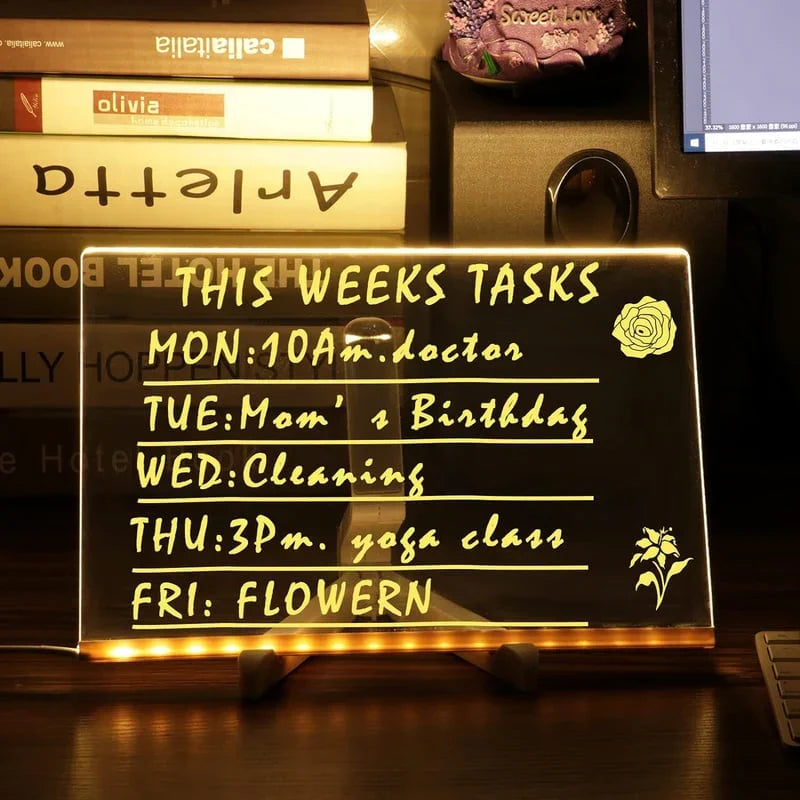 www.caliaitalia.com
caliaitalia
olivia
home decoration
Arletta
THE HOTEL BOOK
Sweet Love
37.32%
THIS WEEKS TASKS
MON:10Am.doctor
TUE:Mom's Birthdag
WED:Cleaning
THU:3Pm. yoga class
FRI: FLOWERN